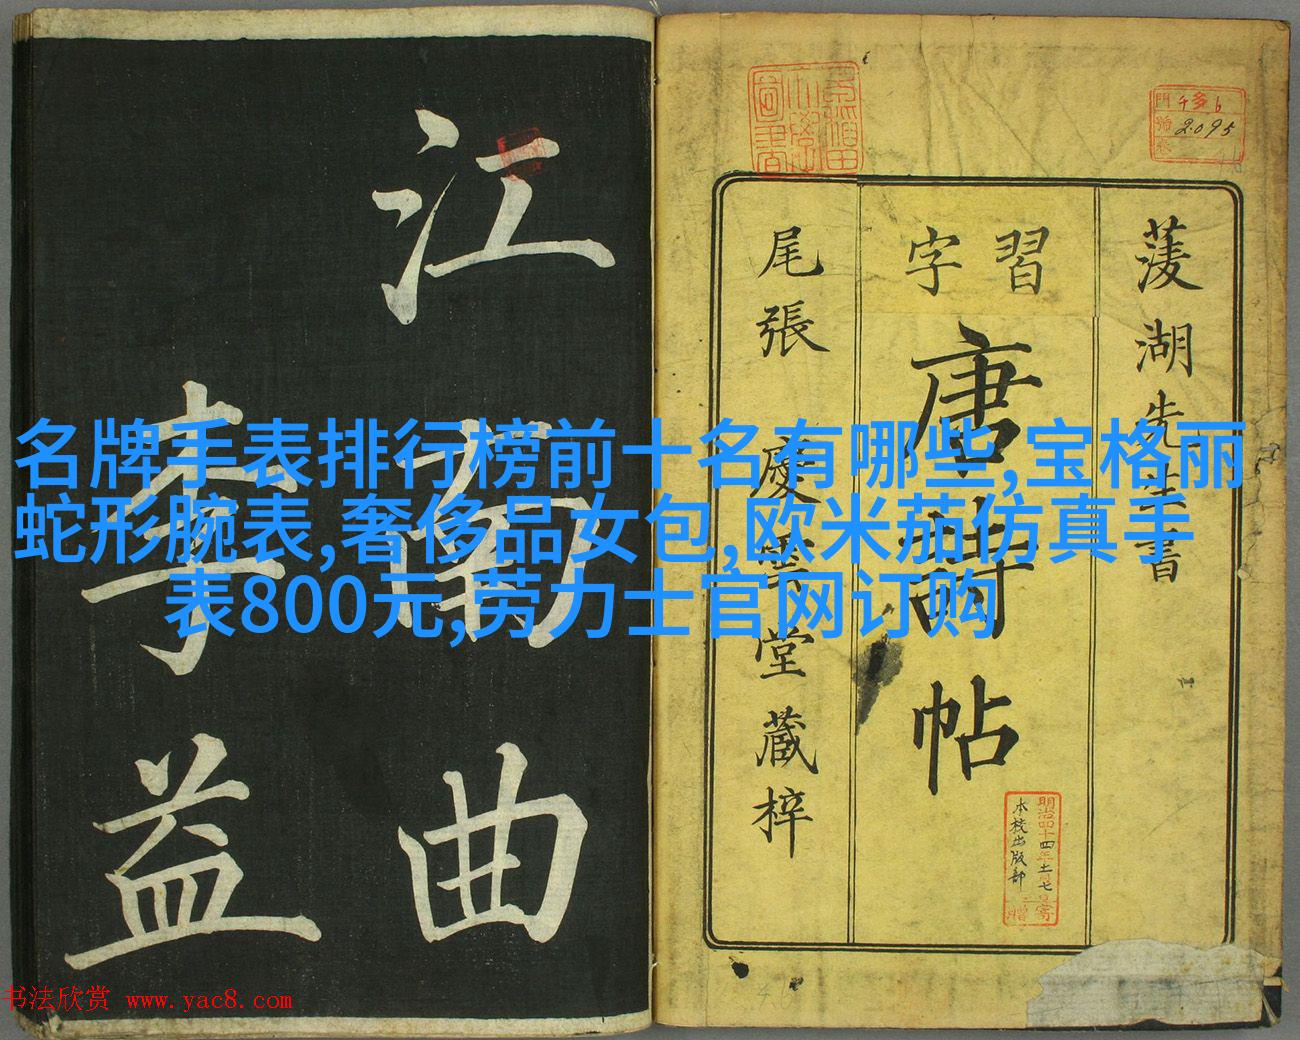 名牌手表排行榜前十名有哪些,宝格丽
蛇形腕表,奢侈品女包,欧米茄仿真手
表800元,劳力士官网订购
蓤湖先生書
習字
唐詩帖
尾張 慶雲堂藏梓
江南曲
李益
門 千多6
號 2095
明治四十四年十一月七
本校出版部
寄贈
书法欣赏 www.yac8.com